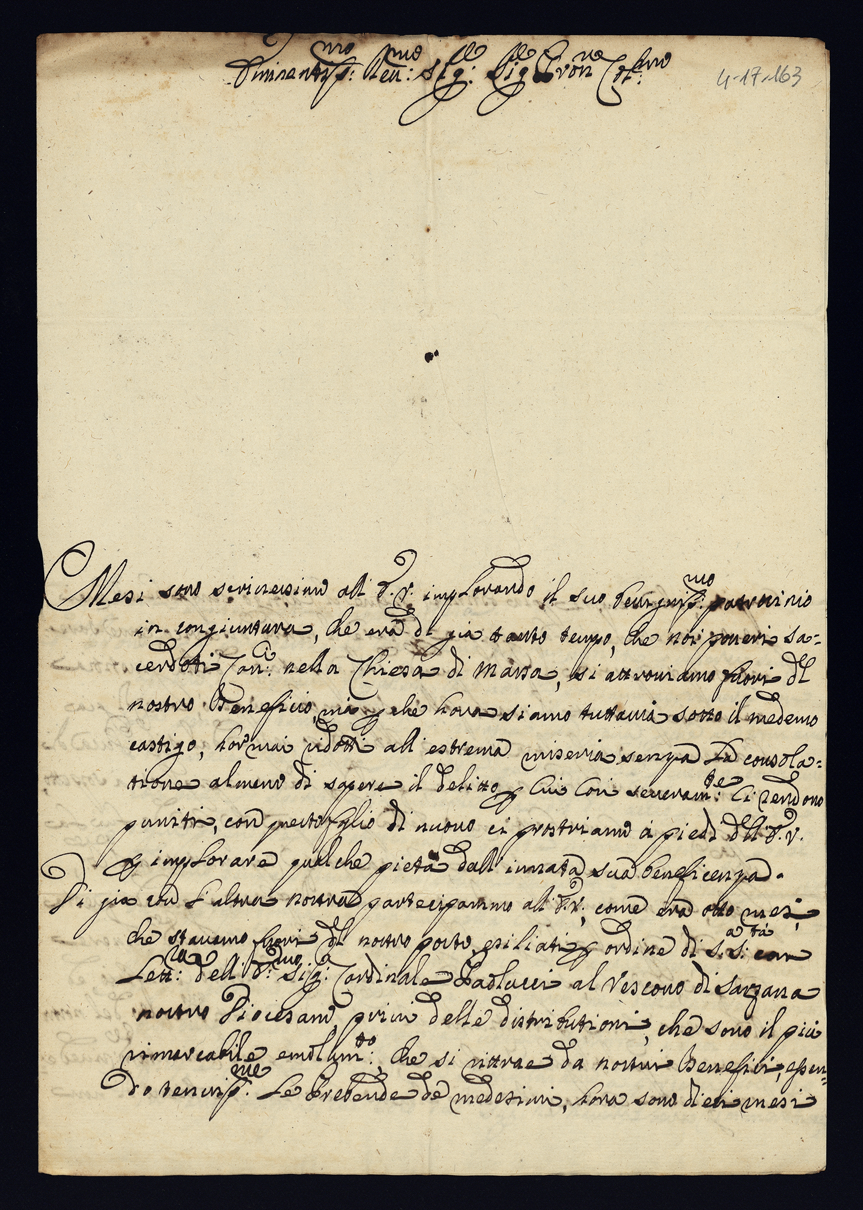 Eminentiss:mo Reu:mo Sig:r Sig:r Pron Col:mo
4-17-163
Mesi sono scriuessimo all' E.V. implorando il suo benigniss:mo patrocinio
in congiuntura, che era di gia tanto tempo, che noi poueri sa=
cerdoti Can:ci nella Chiesa di Massa, si attrouiamo fuori del
nostro Beneficio, mà perche hora siamo tuttauia sotto il medemo
castigo, hormai ridotti all' estrema miseria senza la consola=
tione almeno di sapere il delitto per cui così seueram:te ci rendono
puniti, con questo foglio di nuouo ci prostriamo à piedi dell' E.V.
per implorare qualche pietà dall' innata sua beneficenza.
Di gia con l'altra nostra partecipammo all' E.V., come era otto mesi,
che stauamo fuori del nostro posto esiliati per ordine di S. S:tà con
Lett:ra dell' E:mo Sig: Cardinale Paolucci al Vescouo di Sarzana
nostro Diocesano, priui delle distributioni, che sono il più
rimarcabile emolum:to, che si ritrae da nostri Beneficij, essen=
do tenuiss:me le Prebende de medesimi, hora sono dieci mesi